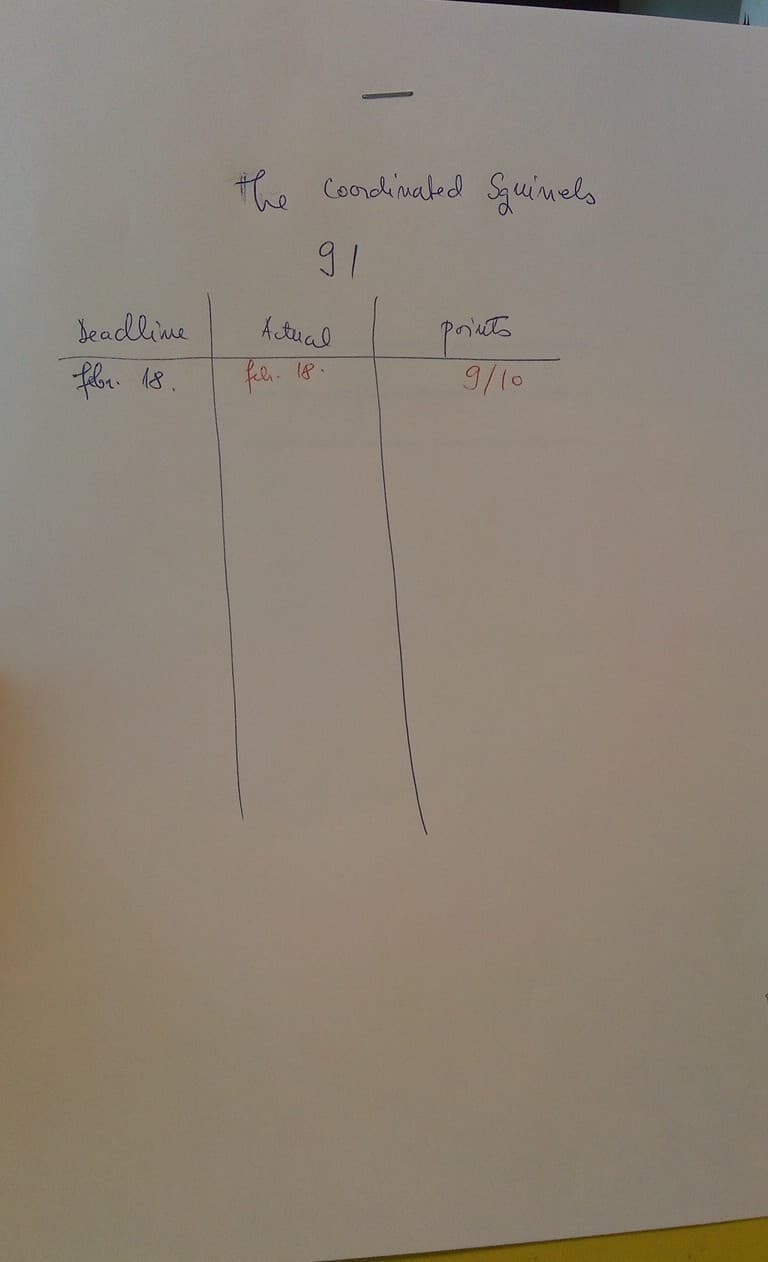 The Coordinated Squirrels
91
Deadline Actual points
febr. 18. feb. 18. 9/10